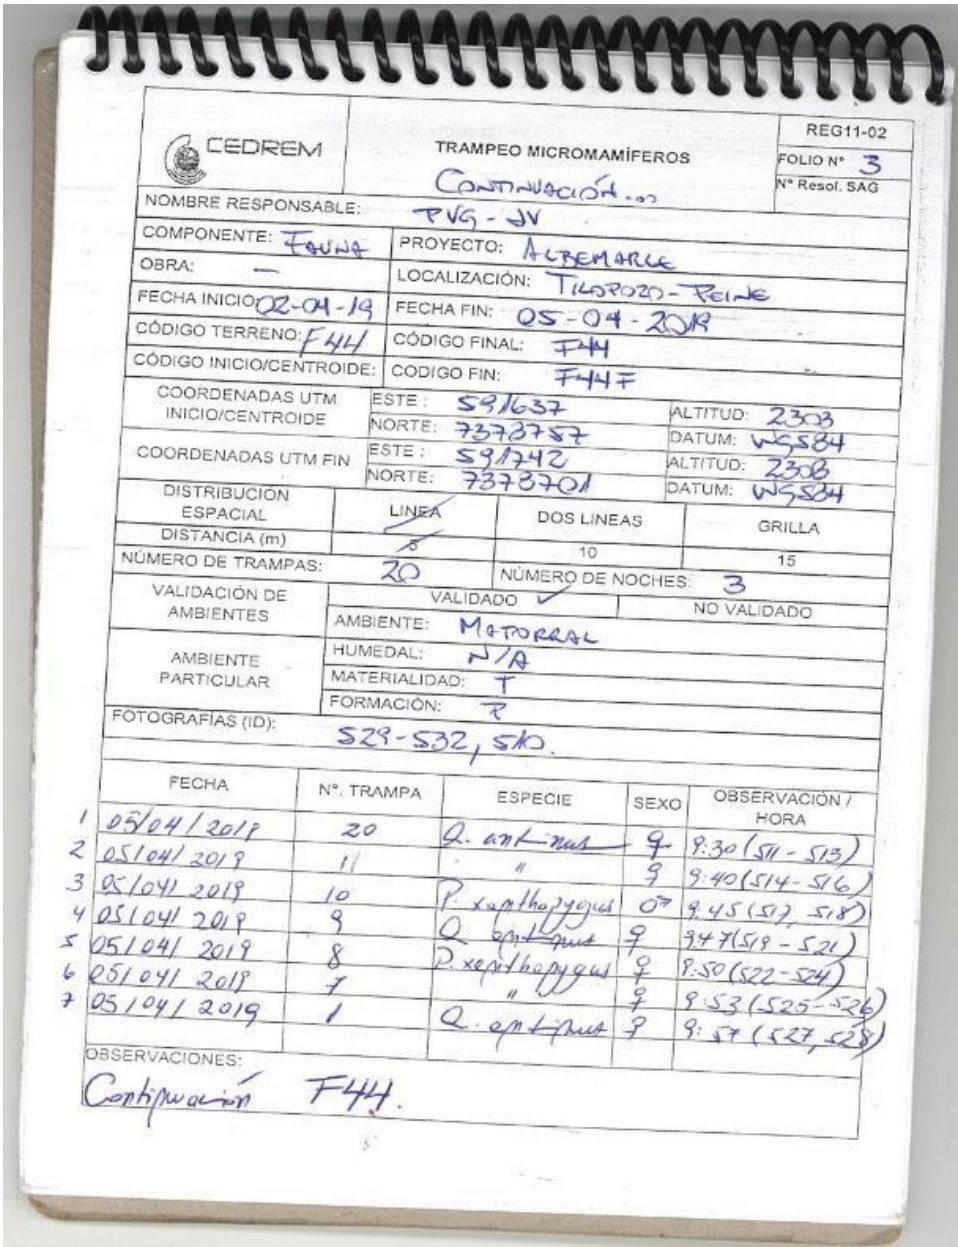 REG11-02
CEDREM
TRAMPEO MICROMAMÍFEROS
FOLIO N° 3
CONTINUACIÓN...
N° Resol. SAG
NOMBRE RESPONSABLE: PVG - JV
COMPONENTE: FAUNA PROYECTO: ALBEMARLE
OBRA: — LOCALIZACIÓN: TILOPOZO - PEINE
FECHA INICIO: 02-04-19 FECHA FIN: 05-04-2019
CÓDIGO TERRENO: F44 CÓDIGO FINAL: F44
CÓDIGO INICIO/CENTROIDE: CODIGO FIN: F44F
COORDENADAS UTM INICIO/CENTROIDE ESTE: 591637 ALTITUD: 2303
NORTE: 7373757 DATUM: WGS84
COORDENADAS UTM FIN ESTE: 591742 ALTITUD: 2303
NORTE: 7373701 DATUM: WGS84
DISTRIBUCIÓN ESPACIAL LINEA DOS LINEAS GRILLA
DISTANCIA (m) 5 10 15
NÚMERO DE TRAMPAS: 20 NÚMERO DE NOCHES: 3
VALIDACIÓN DE AMBIENTES VALIDADO ✓ NO VALIDADO
AMBIENTE: MATORRAL
AMBIENTE PARTICULAR HUMEDAL: N/A
MATERIALIDAD: T
FORMACIÓN:
FOTOGRAFÍAS (ID): 529-532, 510.
FECHA N°. TRAMPA ESPECIE SEXO OBSERVACIÓN / HORA
1 05/04/2019 20 ♀ 9:30 (511 - 513)
2 05/04/2019 11 " ♀ 9:40 (514 - 516)
3 05/04/2019 10 P. xanthopygus ♂ 9:45 (517, 518)
4 05/04/2019 9 ♀ 9:47 (519 - 521)
5 05/04/2019 8 P. xanthopygus ♀ 9:50 (522 - 524)
6 05/04/2019 7 " ♀ 9:53 (525 - 526)
7 05/04/2019 1 ♀ 9:57 (527, 528)
OBSERVACIONES:
Continuación F44.